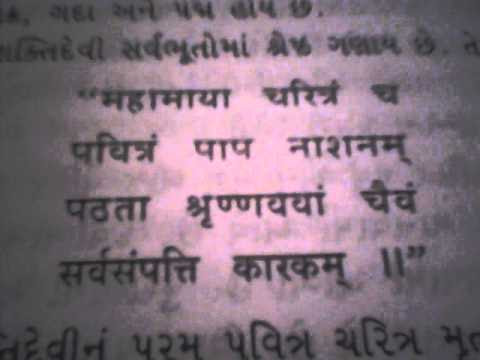 ગદા અને પદ્મ હોય છે.
શક્તિદેવી સર્વભૂતોમાં શ્રેષ્ઠ ગણાય છે. તે
“महामाया चरित्रं च
पवित्रं पाप नाशनम्
पठता श्रृण्णवयां चैवं
सर्वसंपत्ति कारकम् ॥”
ક્તિદેવીનું પરમ પવિત્ર ચરિત્ર મૃત